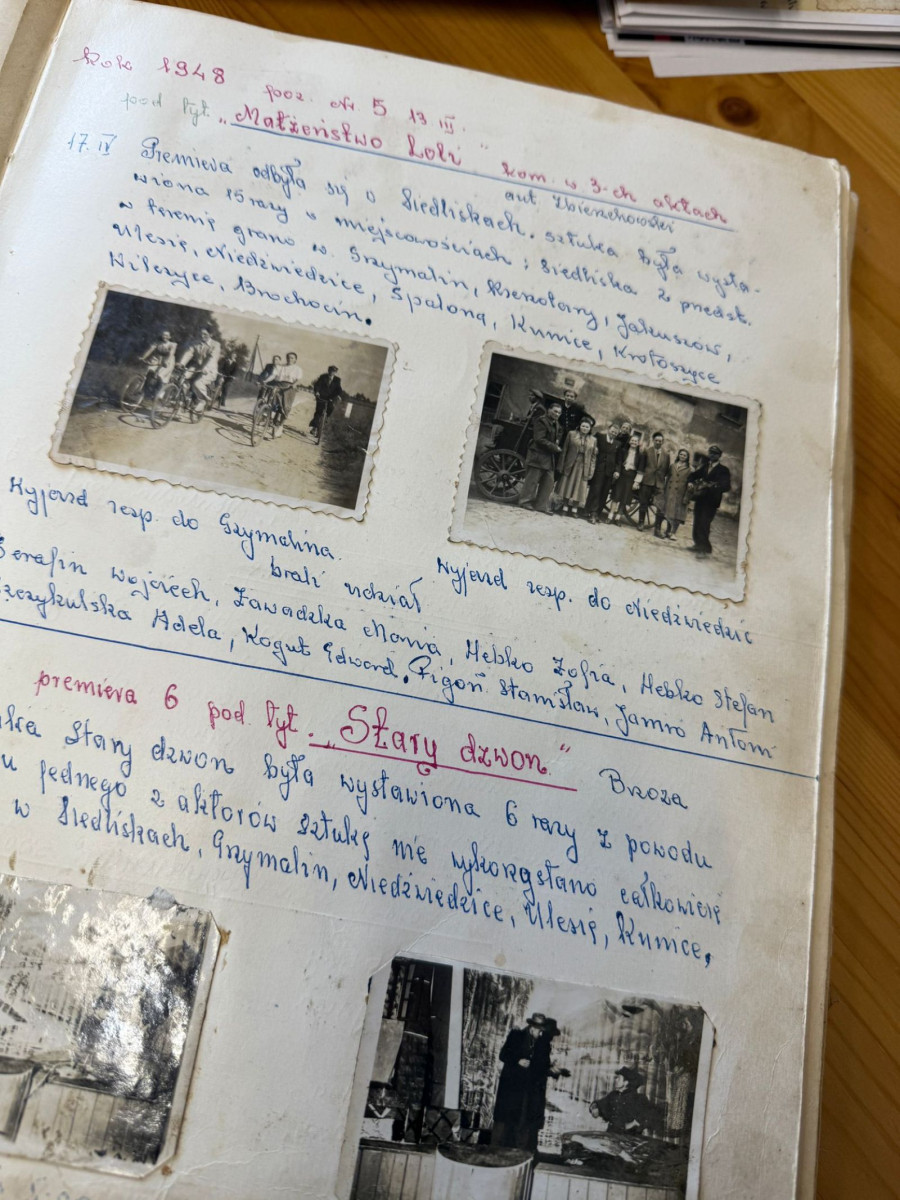 Rok 1948 poz. Nr. 5 13 III.
pod tyt. „Małżeństwo Loli" kom. w 3-ch aktach
aut Zbierzchowski
17. IV Premiera odbyła się w Siedliskach. sztuka była wysta-
wiona 15 razy w miejscowościach; Siedliska 2 przedst.
w terenie grano w. Grzymalin, Jakuszów,
Ulesię, Niedźwiedzice, Spaloną, Kunice, Krotoszyce
Wilczyce, Brochocin.
Wyjazd zesp. do Grzymalina.
Wyjazd zesp. do Niedźwiedzic
brali udział
Serafin Wojciech, Zawadzka Maria, Hebko Zofia, Hebko Stefan
Adela, Kogut Edward, Pigoń Stanisław, Jamro Antoni
premiera 6 pod. tyt. „Stary dzwon." Brzoza
Stary dzwon była wystawiona 6 razy z powodu
jednego z aktorów sztukę nie wykorzystano całkowicie
w Siedliskach, Grzymalin, Niedźwiedzice, Ulesię, Kunice,